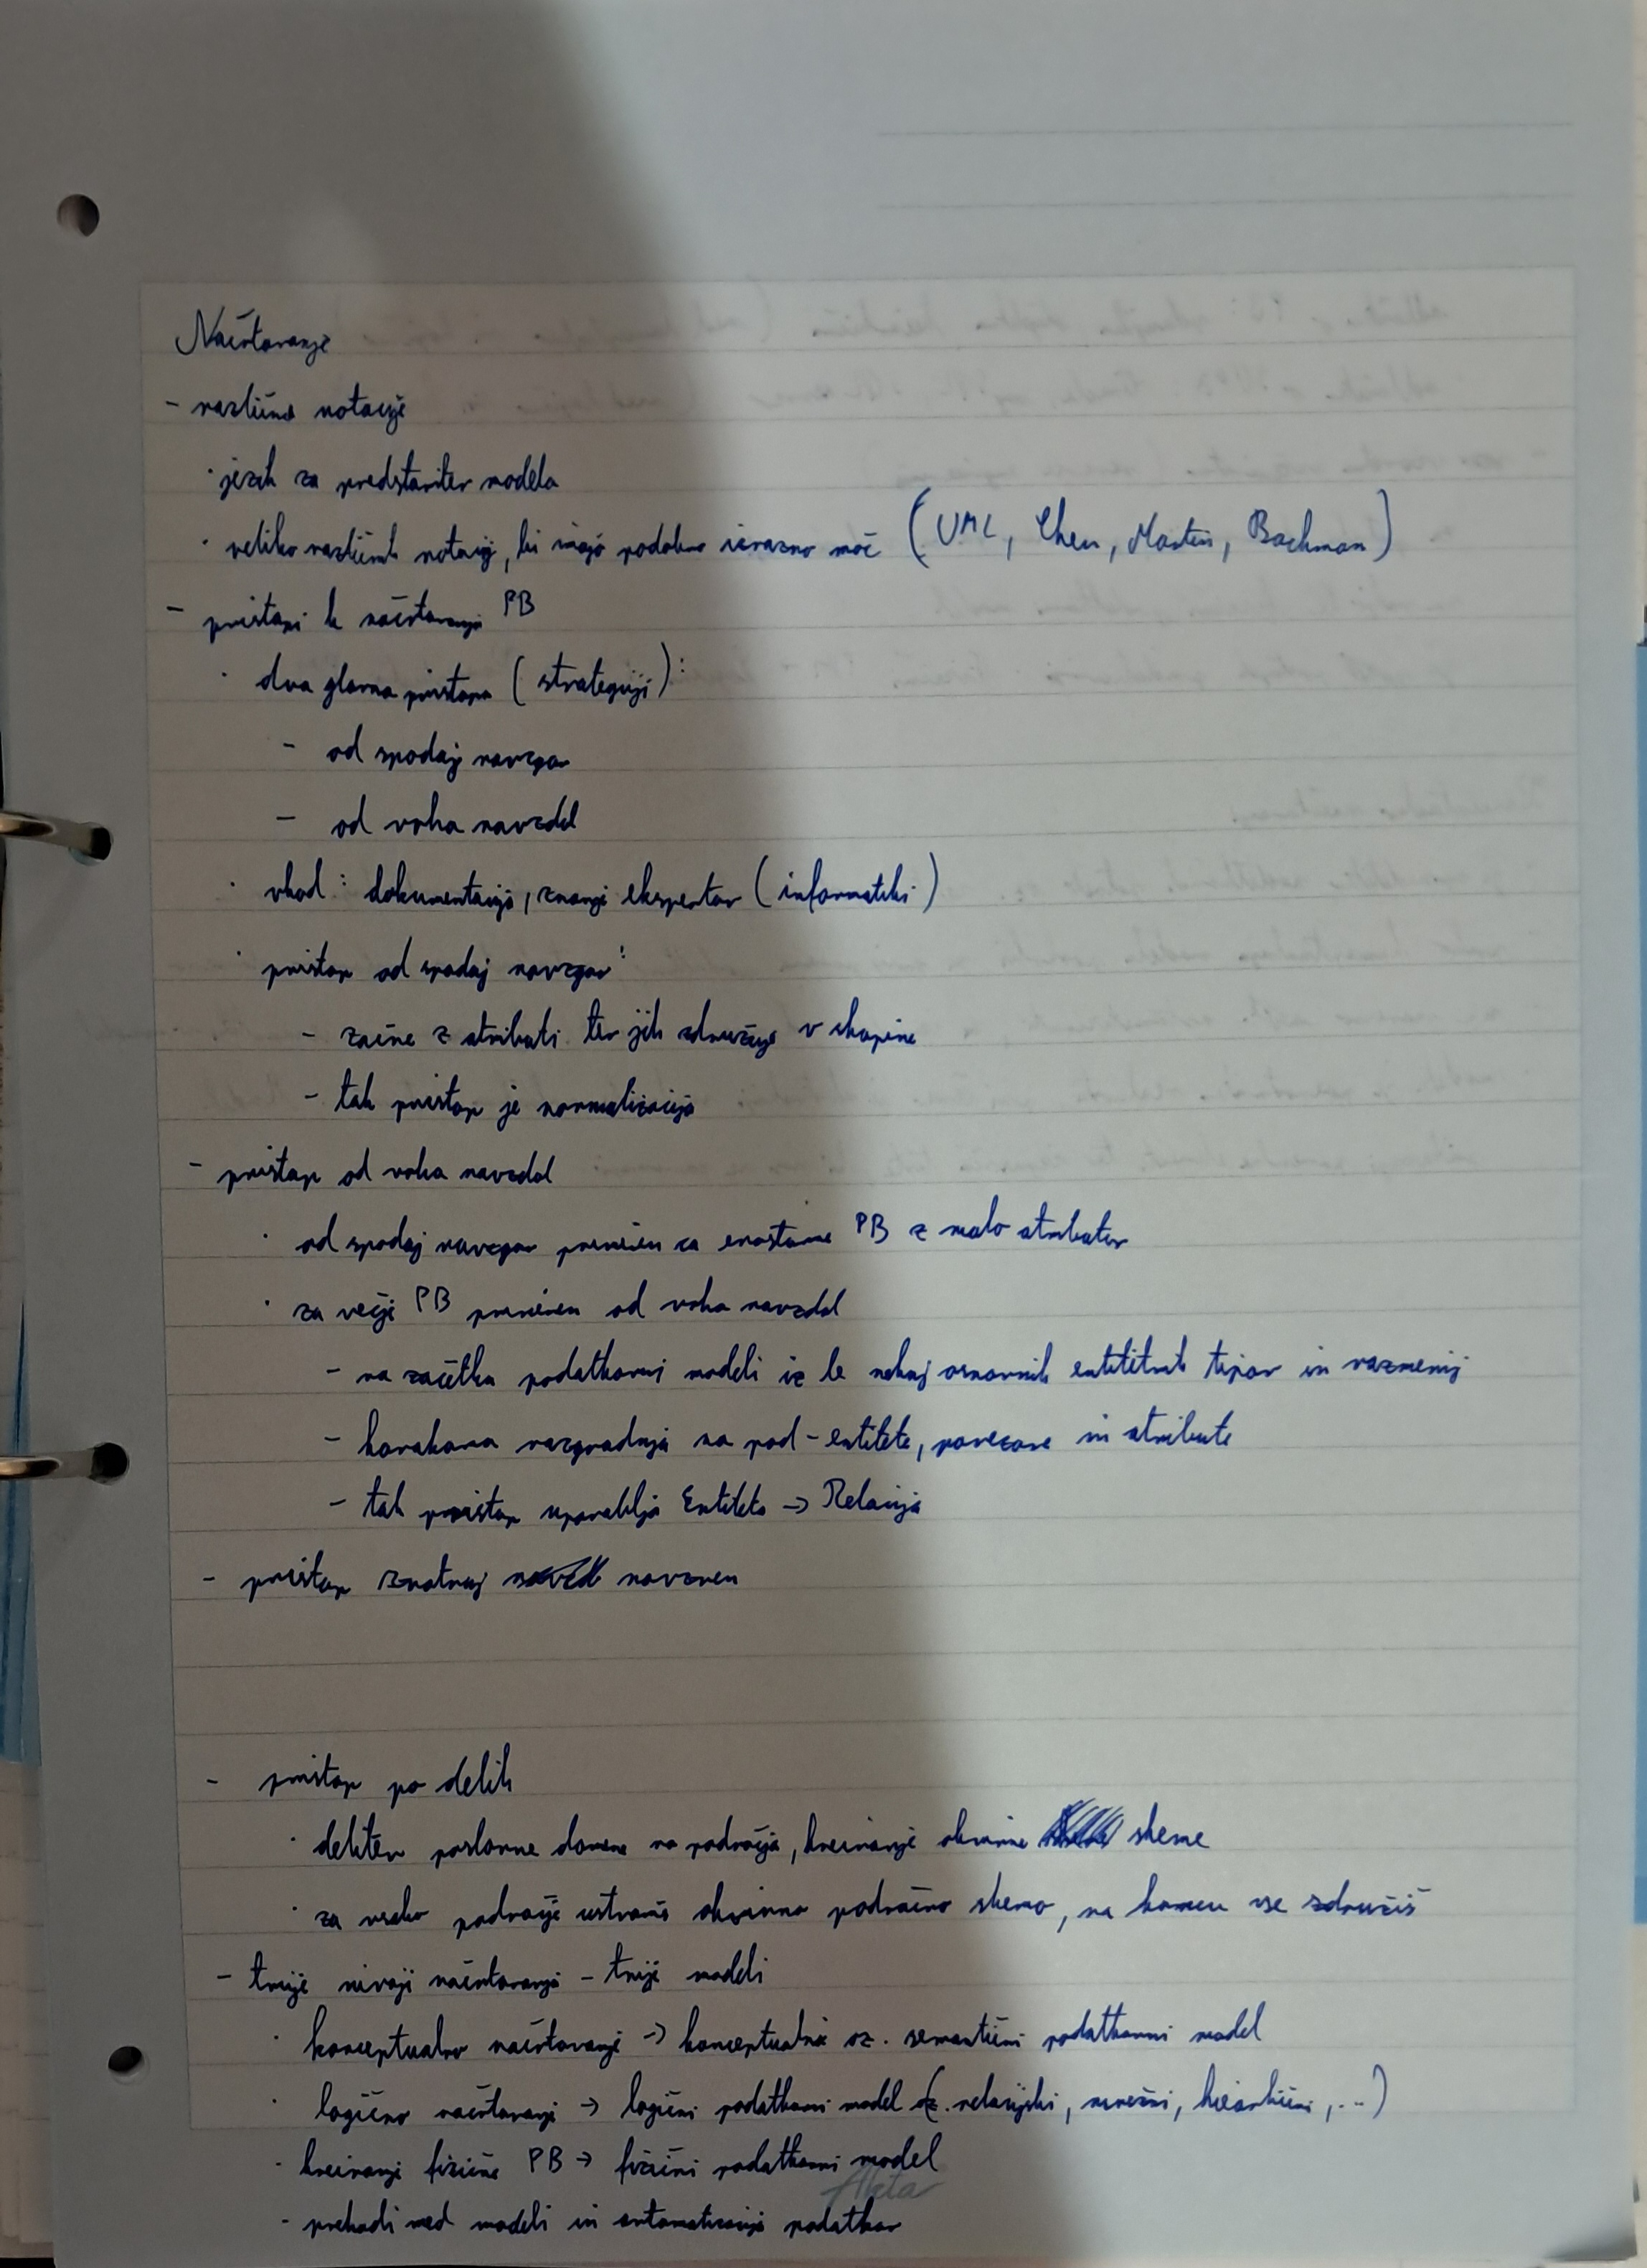 Načrtovanje
- različne notacije
· jezik za predstavitev modela
· veliko različnih notacij, ki imajo podobno izrazno moč (UML, Chen, Martin, Bachman)
- pristopi k načrtovanju PB
· dva glavna pristopa (strategiji):
- od spodaj navzgor
- od vrha navzdol
· vhod: dokumentacija, znanje ekspertov (informatiki)
· pristop od spodaj navzgor:
- začne z atributi ter jih združuje v skupine
- tak pristop je normalizacija
- pristop od vrha navzdol
· od spodaj navzgor primeren za enostavne PB z malo atributov
· za večje PB primeren od vrha navzdol
- na začetku podatkovni modeli iz le nekaj osnovnih entitetnih tipov in razmerij
- korakoma razgradnja na pod-entitete, povezave in atribute
- tak pristop uporablja Entiteta → Relacija
- pristop znotraj navzven
- pristop po delih
· delitev poslovne domene na področja, kreiranje okvirne sheme
· za vsako področje ustvariš okvirno področno shemo, na koncu vse združiš
- trije nivoji načrtovanja - trije modeli
· konceptualno načrtovanje → konceptualni oz. semantični podatkovni model
· logično načrtovanje → logični podatkovni model (relacijski, mrežni, hierarhični, ...)
· kreiranje fizične PB → fizični podatkovni model
- prehodi med modeli in avtomatizacija podatkov
Akta